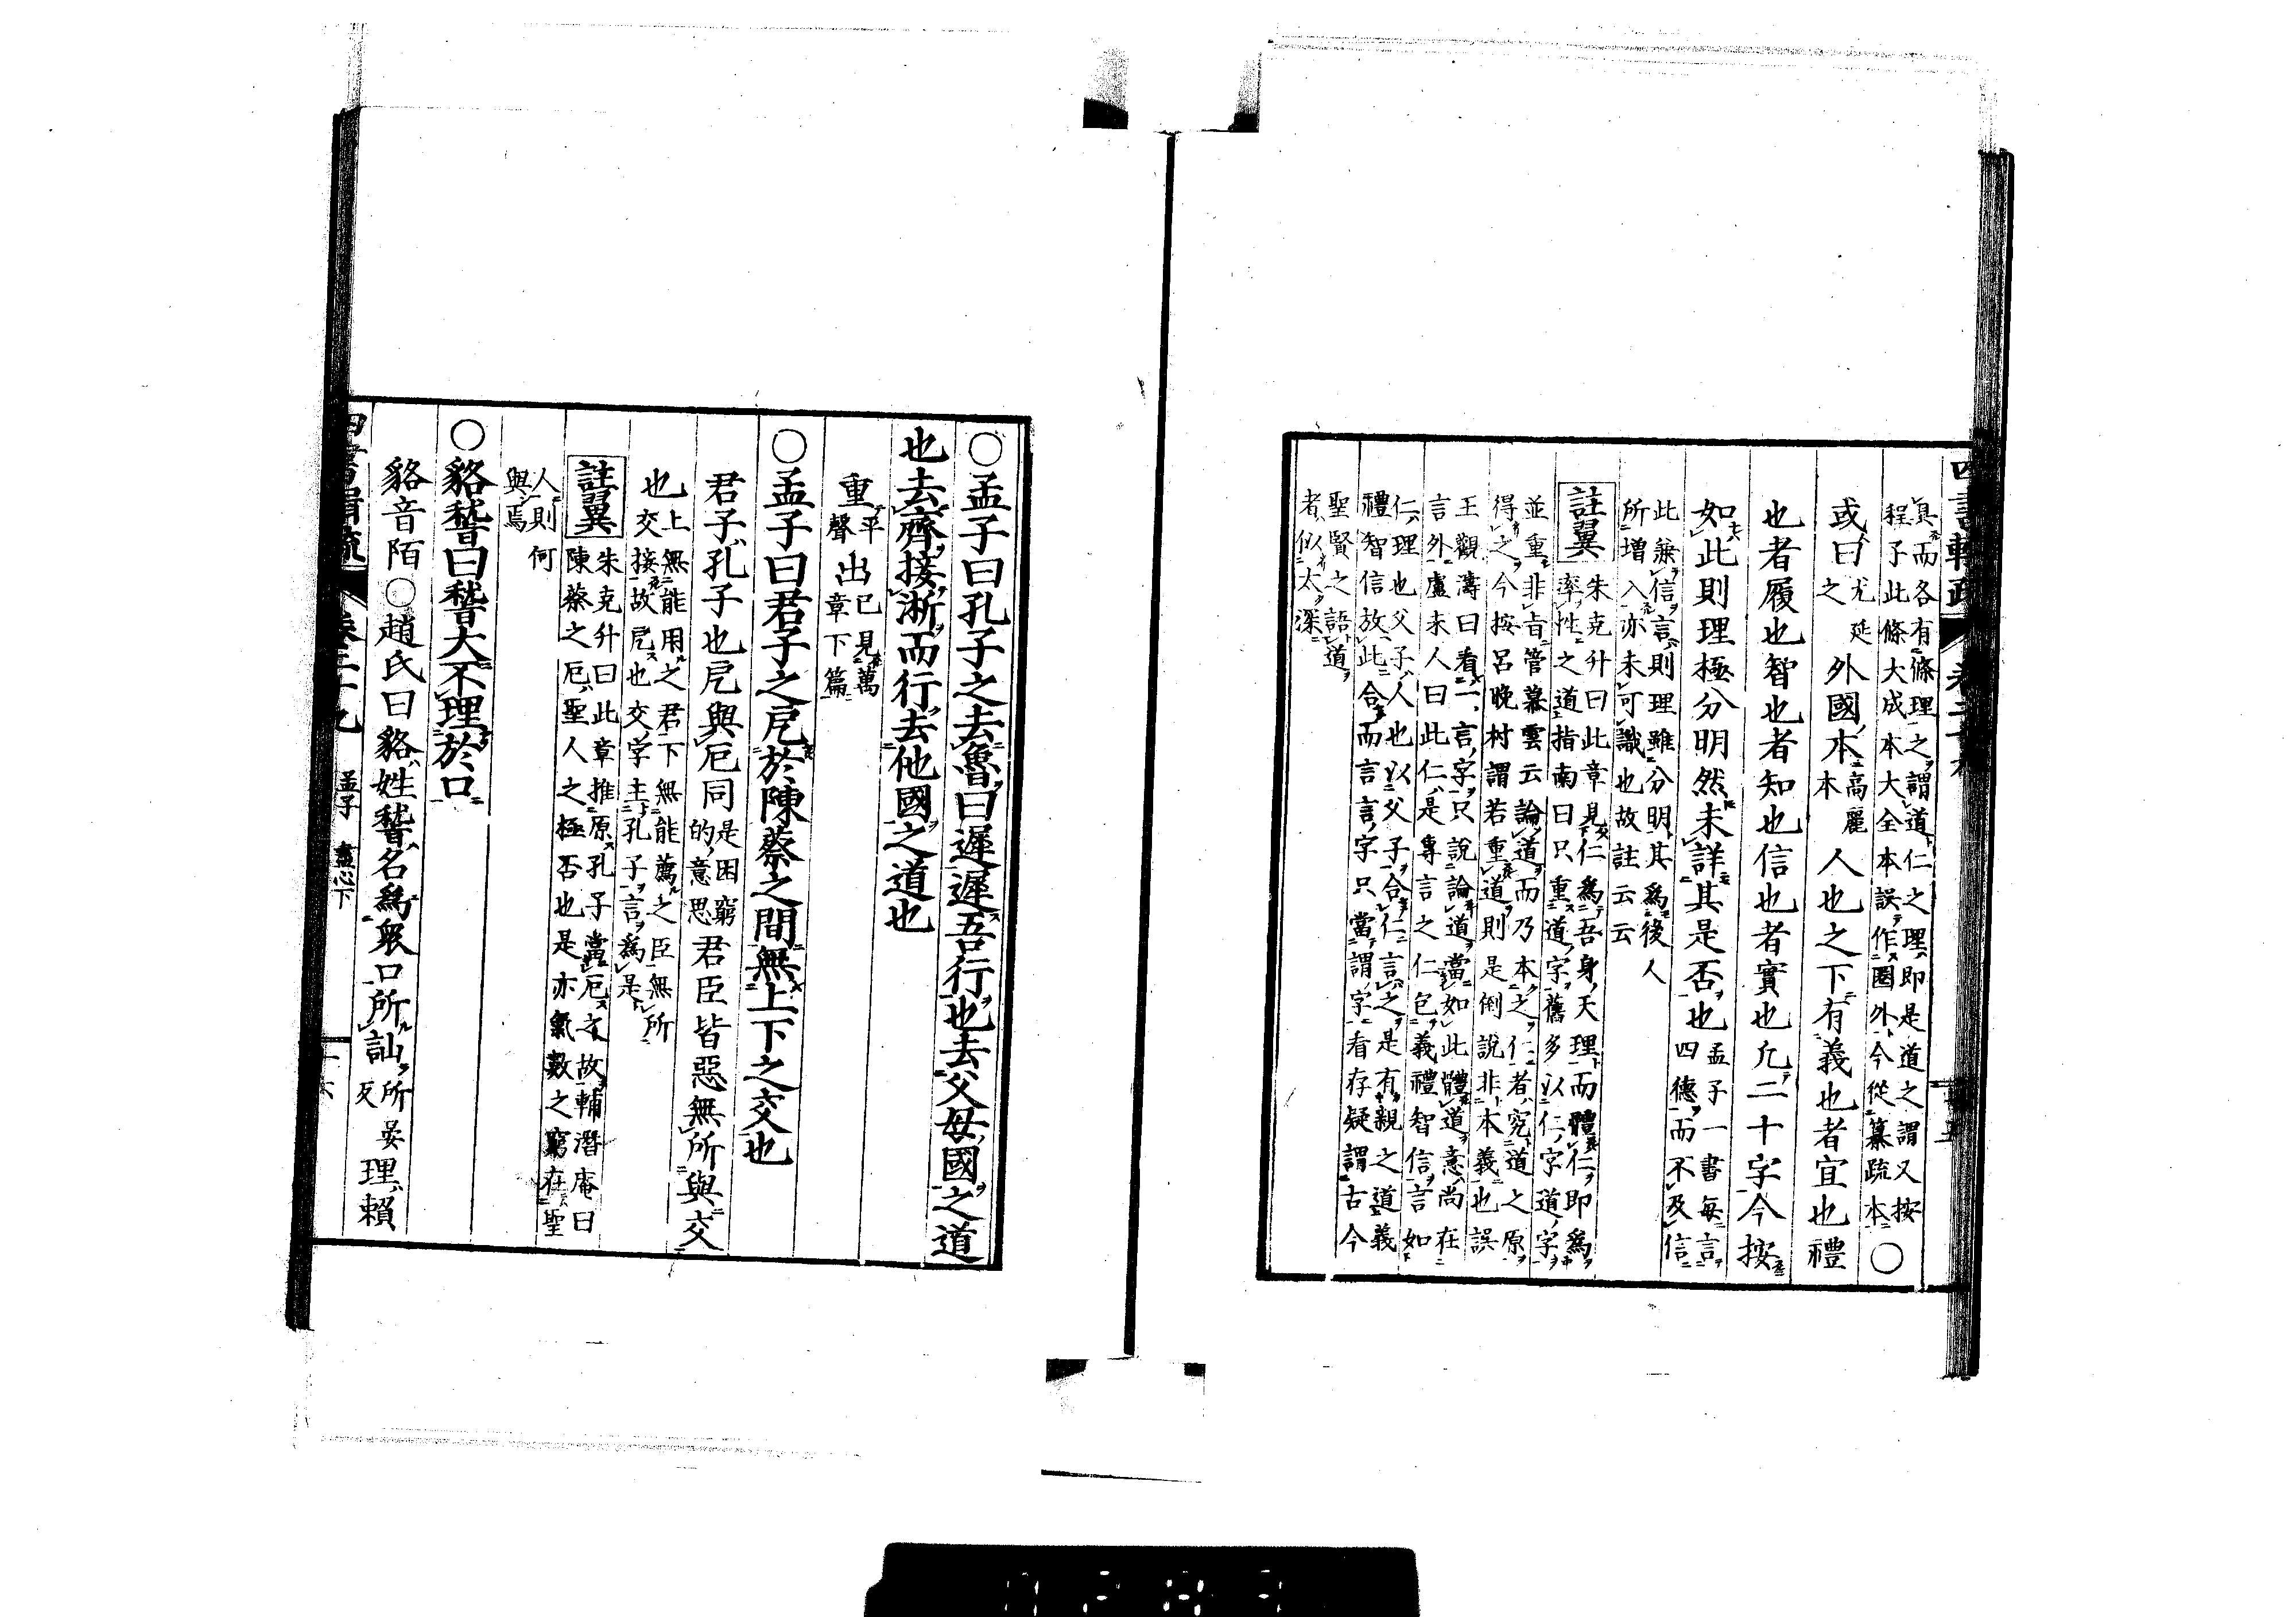 眞而各有條理之謂道仁之理即是道之謂又按
程子此條大成本大全本誤作圈外今從纂疏本○
或曰尤延之外國本高麗本人也之下有義也者宜也禮
也者履也智也者知也信也者實也凢二十字今按
如此則理極分明然未詳其是否也孟子一書每言四德而不及信
此兼信言則理雖分明其爲後人
所增入亦未可識也故註云云
註翼
朱克升曰此章見仁爲吾身天理而體仁即爲
率性之道指南曰只重道字舊多以仁字道字
並重非旨管慕雲云論道而乃本之仁者究道之原
得之今按呂晚村謂若重道則是倒說非本義也誤
王觀濤曰看一言字只說論道當如此體道意尚在
言外盧未人曰此仁是專言之仁包義禮智信言如
仁理也父子人也以父子合仁言之是有親之道義
禮智信放此合而言言字只當謂字看存疑謂古今
聖賢之語道
者似太深
○孟子曰孔子之去魯曰遲遲吾行也去父母國之道
也去齊接淅而行去他國之道也
重平聲出已見萬章下篇
○孟子曰君子之戹於陳蔡之間無上下之交也
君子孔子也戹與厄同是困窮的意思君臣皆惡無所與交
也上無能用之君下無能薦之臣無所
交接故戹也交字主孔子言爲是
註翼
朱克升曰此章推原孔子當厄之故輔潛庵曰
陳蔡之厄聖人之極否也是亦氣數之窮在聖
人則何
與焉
○貉稽曰稽大不理於口
貉音陌○趙氏曰貉姓稽名爲衆口所訕所晏反理賴
孟子 盡心下